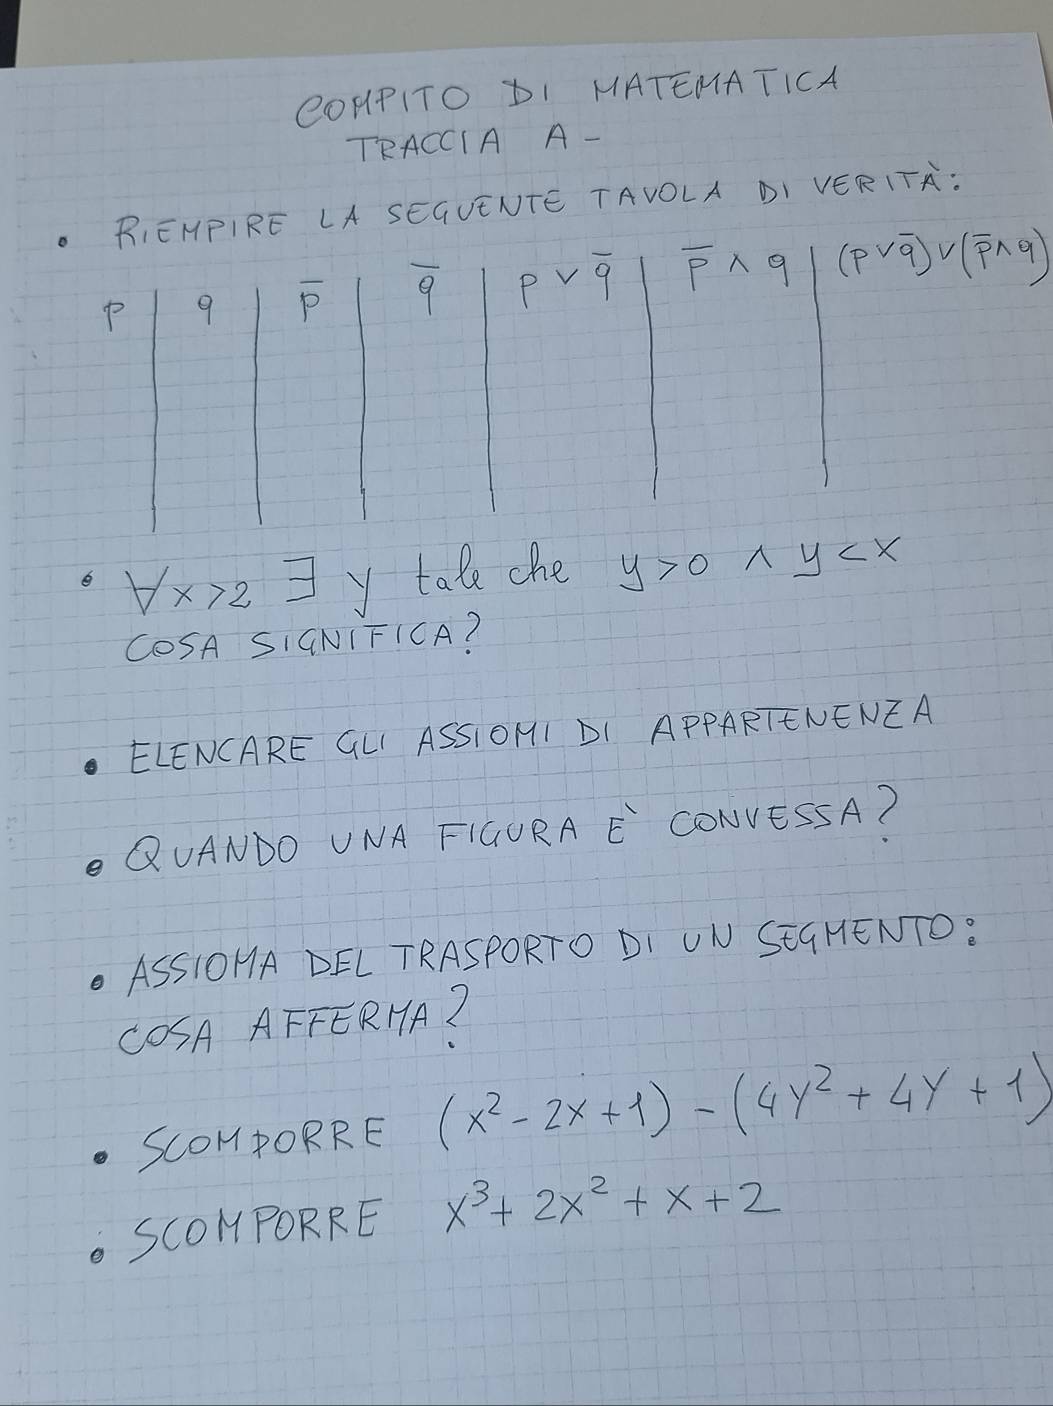 COMPITO DI MATEMATICA
TRACCIA A -
• RIEMPIRE LA SEGUENTE TAVOLA DI VERITÀ:
p | q | p̅ | q̅ | p ∨ q̅ | p̅ ∧ q | (p ∨ q̅) ∨ (p̅ ∧ q)
• ∀x>2 ∃ y tale che y>0 ∧ y<x
COSA SIGNIFICA?
• ELENCARE GLI ASSIOMI DI APPARTENENZA
• QUANDO UNA FIGURA È CONVESSA?
• ASSIOMA DEL TRASPORTO DI UN SEGMENTO:
COSA AFFERMA?
• SCOMPORRE (x² - 2x + 1) - (4y² + 4y + 1)
• SCOMPORRE x³ + 2x² + x + 2